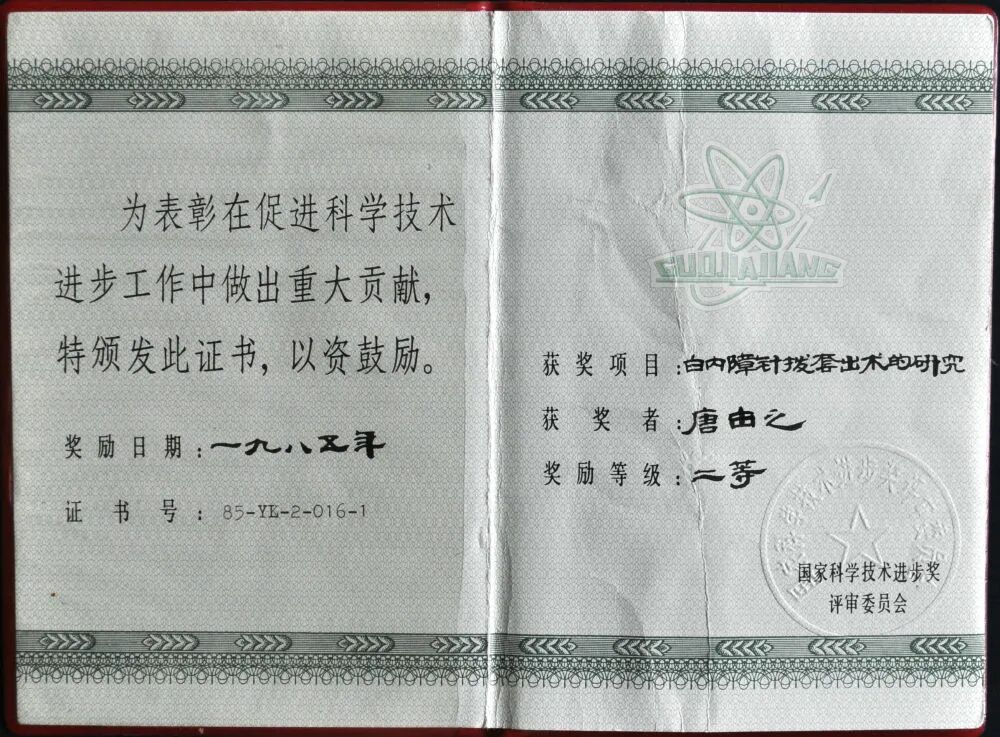 为表彰在促进科学技术
进步工作中做出重大贡献，
特颁发此证书，以资鼓励。
奖励日期：一九八五年
证书号：85-YL-2-016-1
GUOJIAJIANG
获奖项目：白内障针拨套出术的研究
获奖者：唐由之
奖励等级：二等
国家科学技术进步奖
评审委员会